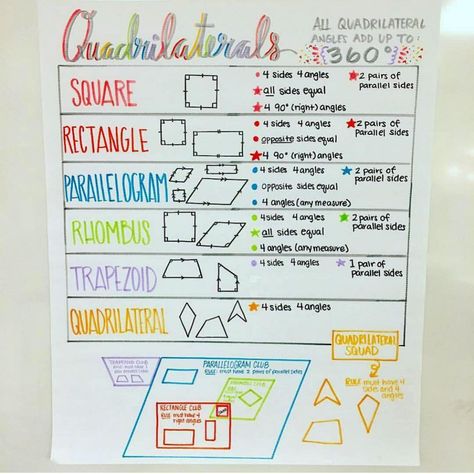 Quadrilaterals
ALL QUADRILATERAL
ANGLES ADD UP TO:
360°
SQUARE
4 sides 4 angles
2 pairs of
parallel sides
all sides equal
4 90° (right) angles
RECTANGLE
4 sides 4 angles
2 pairs of
parallel sides
opposite sides equal
4 90° (right) angles
PARALLELOGRAM
4 sides 4 angles
2 pairs of
parallel sides
opposite sides equal
4 angles (any measure)
RHOMBUS
4 sides 4 angles
2 pairs of
parallel sides
all sides equal
4 angles (any measure)
TRAPEZOID
4 sides 4 angles
1 pair of
parallel sides
QUADRILATERAL
4 sides 4 angles
TRAPEZOID CLUB
RULE: must have 1
pair parallel sides
PARALLELOGRAM CLUB
RULE: must have 2 pairs of parallel sides
RHOMBUS CLUB
RECTANGLE CLUB
RULE: must have 4
right angles
QUADRILATERAL
SQUAD
RULE: must have 4
sides and 4
angles